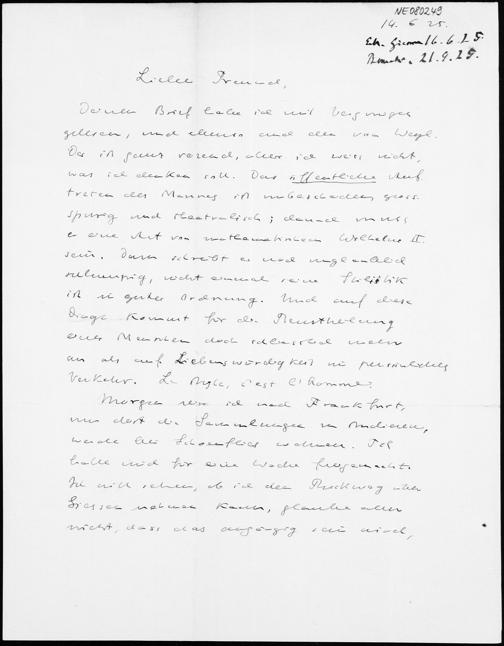 NE080249
14. 6 25.
16.6.25.
21.9.25.
Lieber Freund,
Deinen Brief habe ich mit Vergnügen
gelesen, und ebenso auch den von Weyl.
Der ist ganz reizend, aber ich weiss nicht,
was ich denken soll. Das öffentliche Auf-
treten des Mannes ist unbescheiden, gross-
spurig und theatralisch; danach muss
er eine Art von mathematischem Wilhelm II.
sein. Dann schreibt er auch unglaublich
schlumpig, nicht einmal seine Stilistik
ist in guter Ordnung. Und auf diese
Dinge kommt für die Beurtheilung
eines Menschen doch schliesslich mehr
an als auf Liebenswürdigkeit im persönlichen
Verkehr. Le style, c'est l'homme.
Morgen reise ich nach Frankfurt,
um dort die Sammlungen zu studieren,
werde bei Schoenflies wohnen. Ich
habe mich für eine Woche freigemacht.
Ich will sehen, ob ich den Rückweg über
Giessen nehmen kann, glaube aber
nicht, dass das angängig sein wird,